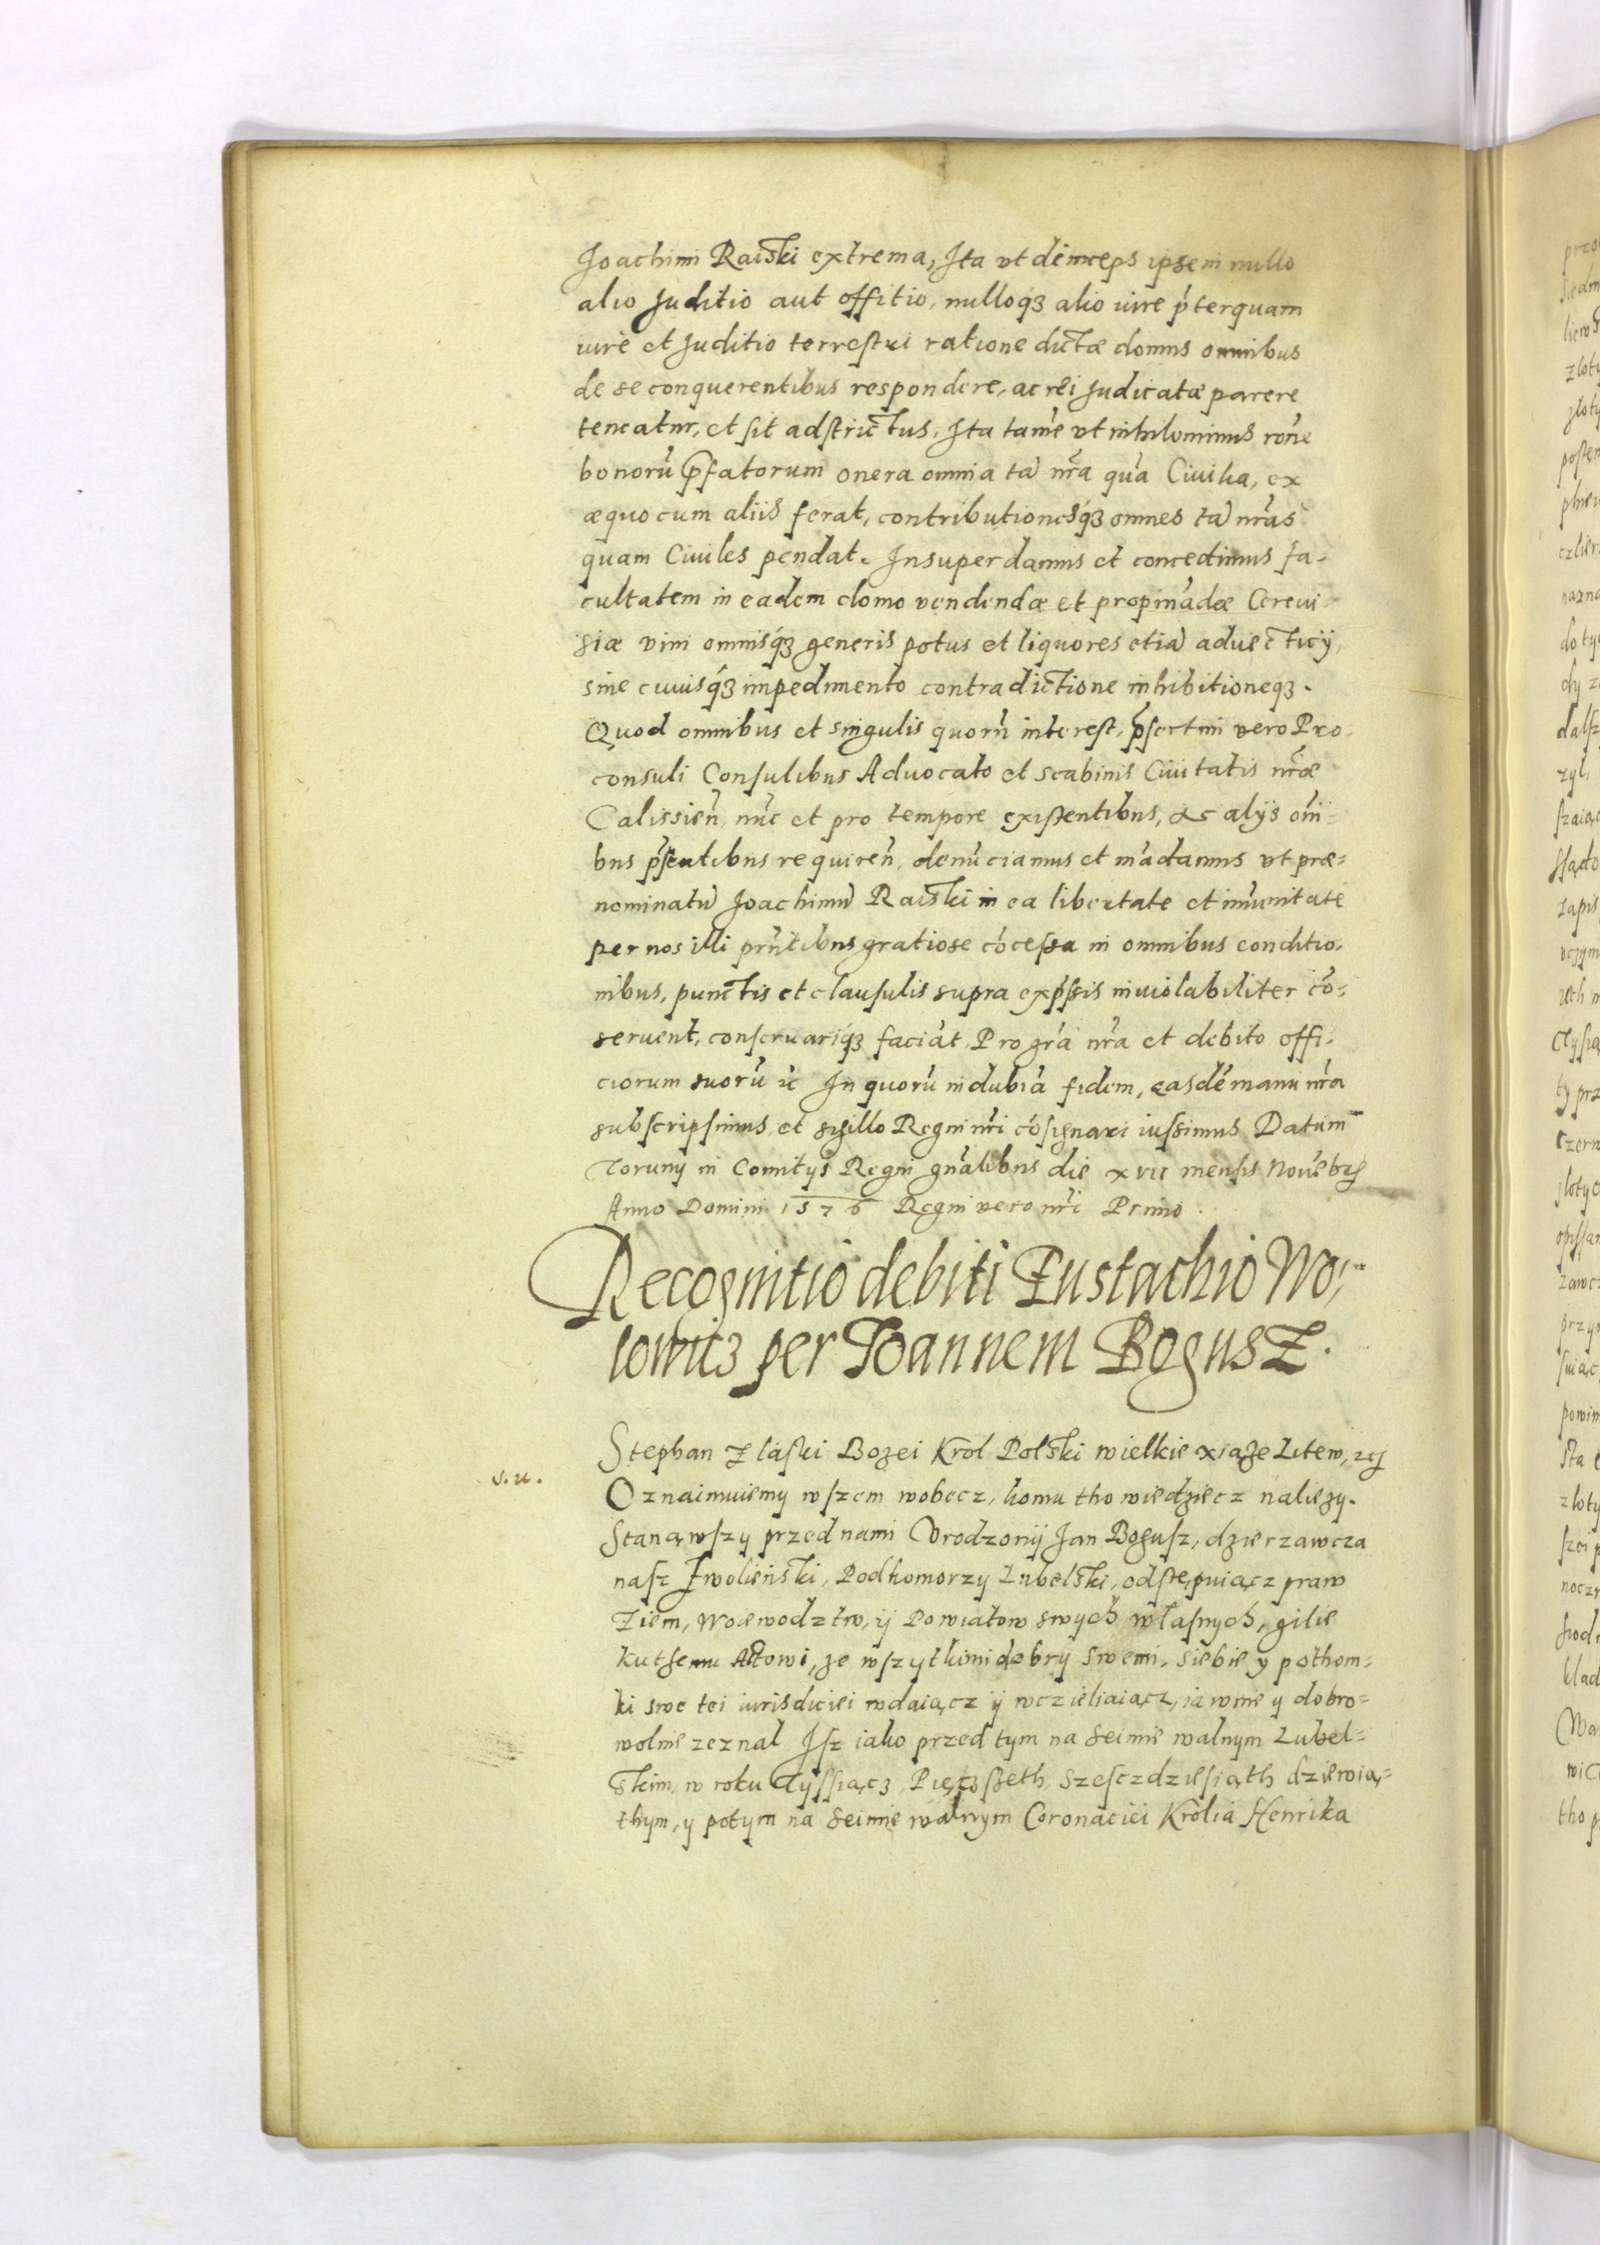 Joachimi Raiski extrema, Ita vt deinceps ipse in nullo
alio Juditio aut offitio, nulloqз alio iure p̃terquam
iure et Juditio terrestri ratione dictæ domus omnibus
de se conquerentibus respondere, ac rei Judicatæ parere
teneatur, et sit adstrictus, Ita tamẽ vt nihilominus rõne
bonorũ p̃fatorum onera omnia tã nr̃a quã Ciuilia, ex
æquo cum aliis ferat, contributionesqз omnes tã nr̃as
quam Ciuiles pendat. Insuper damus et concedimus fa-
cultatem in eadem domo vendendæ et propinãdæ Cereui-
siæ vini omnisqз generis potus et liquores etiã aduecticij,
sine cuiusqз impedimento contradictione inhibitioneqз.
Quod omnibus et singulis quorũ interest, p̃sertim vero Pro-
consuli Consulibus Aduocato et scabinis Ciuitatis nr̃æ
Calissieñ, nũc et pro tempore existentibus, ac alijs om̃i-
bus p̃sentibus requireñ, denũciamus et mãdamus vt præ=
nominatũ Joachimũ Raiski in ea libertate et im̃unitate
per nos illi prñtibus gratiose cõcessa in omnibus conditio-
nibus, punctis et clausulis supra exp̃ssis inuiolabiliter cõ-
seruent, conseruariqз faciãt, Pro gr̃a nr̃a et debito offi-
ciorum suorũ ic In quorũ indubiã fidem, easdẽ manu nr̃a
subscripsimus, et sigillo Regni nr̃i cõsignari iussimus Datum
Toruny in Comitijs Regni gñalibus die xvii mensis Nouẽbr
Anno Domini 1576 Regni vero nr̃i Primo.
Recognitio debiti Eustachio Wo-
lowicз per Joannem Bogusz.
Stephan Z laski Bozei Krol Polski wielkie xiąze Litew, rcz
s. u.
Oznaimuiemy wszem wobecz, komu tho wiedziecz naliezy.
Stanąwszy przed nami Vrodzonij Jan Bogusz, dzierzawcza
nasz Zwolieński, Podkomorzy Lubelski, odstępuiącz praw
Ziem, Woiewodztw, ij Powiatow swych własnych, gilie
kuthemu Actowi, ze wszytkimi dobry swemi, siebie y pothom-
ki swe tei iurisdiciei wdaiącz ij wczieliaiącz, iawnie y dobro=
wolnie zeznal Isz iako przed tym na seimie walnym Lubel=
skim, w roku Tyssiącз Pięczseth, Szesczdziesiąth dziewią-
thym, y potym na seimie walnym Coronaciei Krolia Henrika